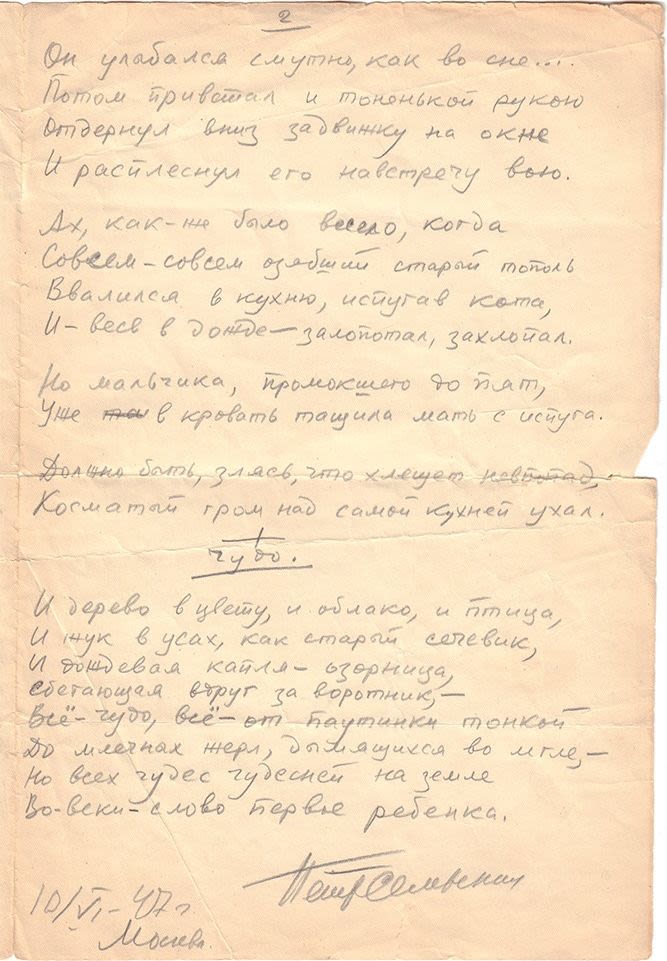 2
Он улыбался смутно, как во сне....
Потом привстал и тоненькой рукою
Отдернул вниз задвижку на окне
И расплеснул его навстречу вою.
Ах, как-же было весело, когда
Совсем-совсем озябший старый тополь
Ввалился в кухню, испугав кота,
И - весь в дожде - залопотал, захлопал.
Но мальчика, промокшего до пят,
Уже в кровать тащила мать с испуга.
Должно быть, злясь, что хлещет невпопад,
Косматый гром над самой кухней ухал.
Чудо.
И дерево в цвету, и облако, и птица,
И жук в усах, как старый сечевик,
И дождевая капля - озорница,
сбегающая вдруг за воротник, -
Всё - чудо, всё - от паутинки тонкой
До млечных жерл, дымящихся во мгле, -
Но всех чудес чудесней на земле
Во-веки - слово первое ребенка.
Петр Семынин
10/VI - 47 г
Москва.